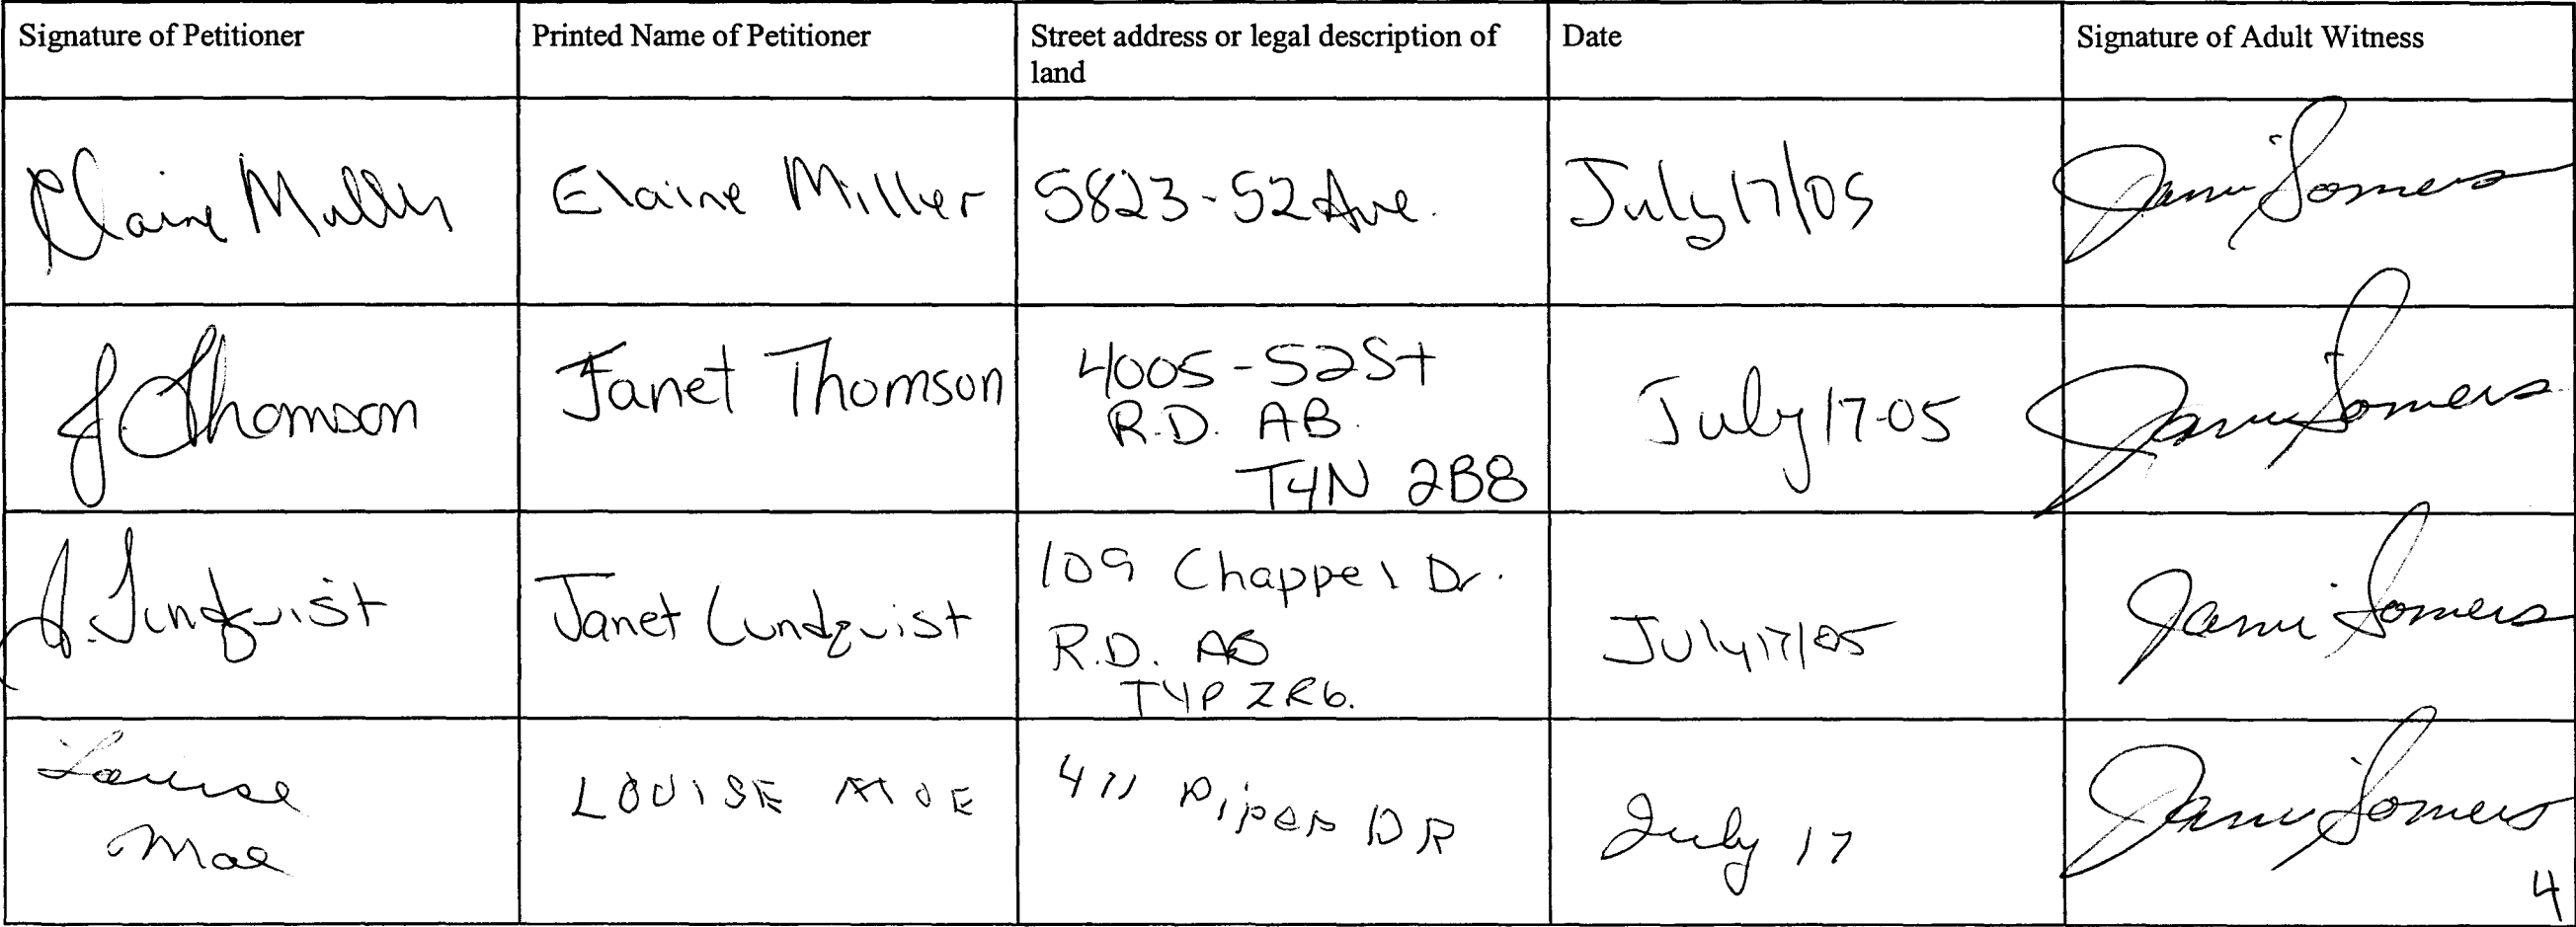 Signature of Petitioner
Printed Name of Petitioner
Street address or legal description of
land
Date
Signature of Adult Witness
Elaine Miller
Elaine Miller
5823-52 Ave.
July 17/05
Jami Somers
J Thomson
Janet Thomson
4005-52St
R.D. AB.
T4N 2B8
July 17-05
Jami Somers
J. Lundquist
Janet Lundquist
109 Chappel Dr.
R.D. AB
T4P 2R6.
July 17/05
Jami Somers
Louise
Moe
LOUISE MOE
411 Piper DR
July 17
Jami Somers
4